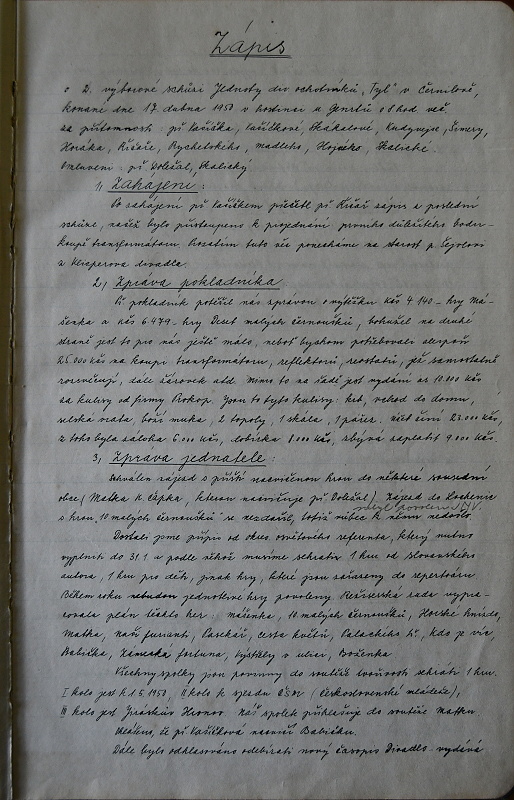 Zápis
o 2. výborové schůzi Jednoty div. ochotníků „Tyl" v Černilově,
konané dne 17. dubna 1950 v hostinci u Genrtů o 8 hod. več.
za přítomnosti: př. Vašíčka, Vašíčkové, Skákalové, Šimery,
Horáka, Říčaře, Rychetského, Madleho, Skalické.
Omluveni: př. Doležal, Skalický
1) Zahájení:
Po zahájení př. Vašíčkem přečetl př. Říčař zápis z poslední
schůze, načež bylo přistoupeno k projednání prvního důležitého bodu-
koupě transformátoru. Prozatím tuto věc ponecháme na starost p. Sejvlovi
z Klicperova divadla.
2) Zpráva pokladníka
Př. pokladník potěšil nás zprávou o výtěžku Kčs 4.140.- hry Má-
šenka a Kčs 6479.- hry Deset malých černoušků, bohužel na druhé
straně jest to pro nás ještě málo, neboť bychom potřebovali alespoň
25.000 Kčs na koupi transformátoru, reflektorů, reostatů,
dále žárovek atd. Mimo to na řadě jest vydání as 10.000 Kčs
za kulisy od firmy Prokop. Jsou to tyto kulisy: krb, vchod do domu,
selská vrata, boží muka, 2 topoly, 1 skála, 1 pařez. Účet činí 23.000 Kčs,
z toho byla záloha 6.000 Kčs, dobírka 8.000 Kčs, zbývá zaplatit 9.000 Kčs.
3) Zpráva jednatele:
Schválen zájezd s příští nacvičenou hrou do některé sousední
obce (Matka K. Čapka, kterou nacvičuje př. Doležal). Zájezd do Librantic
s hrou „10 malých černoušků" se neuskutečnil, totiž vůbec k němu nedošlo.
Dostali jsme přípis od okres. osvětového referenta, který nutno
vyplniti do 31.1. a podle něhož musíme sehráti 1 hru od slovanského
autora, 1 hru pro děti, jinak hry, které jsou zařazeny do repertoáru
Během roku nebudou jednotlivé hry povoleny. Režisérská rada vypra-
covala plán těchto her: Mášenka, 10 malých černoušků, Horské hnízdo,
Matka, Naši furianti, Pasekáři, Cesta květů, Palackého tř., Kdo je víc,
Babička, Zámecká fortuna, Výstřely v ulici, Boženka
Všechny spolky jsou povinny do soutěže tvořivosti sehráti 1 hru.
I kolo jest k 1.5.1950, II kolo k sjezdu ČSM (Československé mládeže),
III kolo jest Jiráskův Hronov. Náš spolek přihlašuje do soutěže Matku.
Usneseno, že př. Vašíčková nacvičí Babičku.
Dále bylo odhlasováno odebírati nový časopis Divadlo - vydává